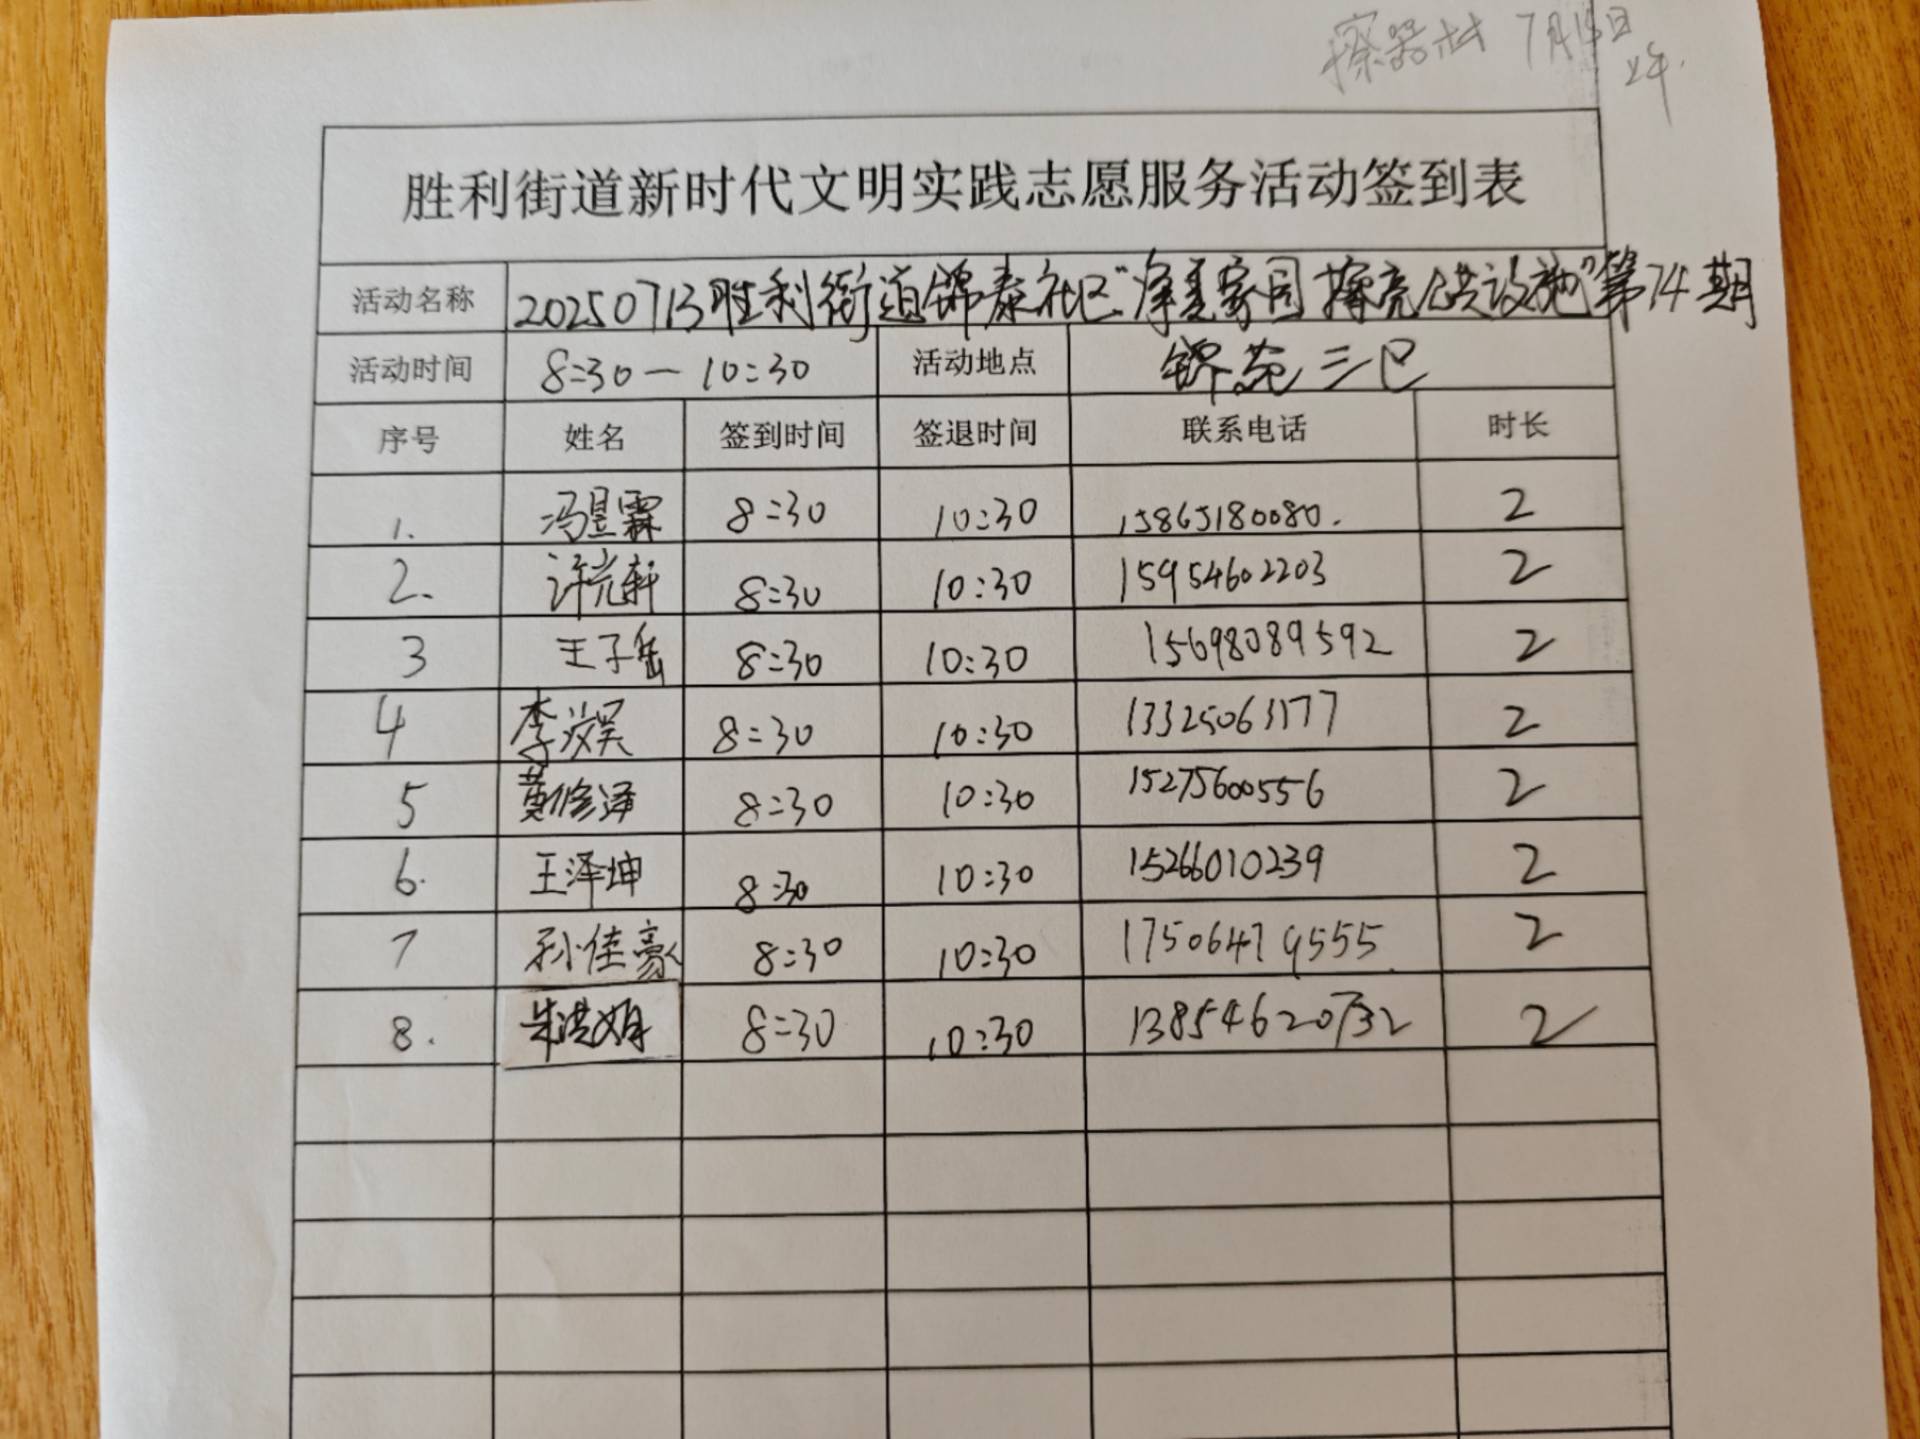 擦器材 7月13日
上午.
胜利街道新时代文明实践志愿服务活动签到表
活动名称 20250713胜利街道锦泰社区"净美家园 擦亮公共设施"第74期
活动时间 8:30—10:30 活动地点 锦苑三区
序号 姓名 签到时间 签退时间 联系电话 时长
1. 冯昱霖 8:30 10:30 15865180080. 2
2. 许光轩 8:30 10:30 15954602203 2
3 王子岳 8:30 10:30 15698089592 2
4 李汶昊 8:30 10:30 13325063177 2
5 黄修泽 8:30 10:30 15275600556 2
6. 王泽坤 8:30 10:30 15266010239 2
7 孙佳豪 8:30 10:30 17506479555 2
8. 朱洪娟 8:30 10:30 13854620732 2